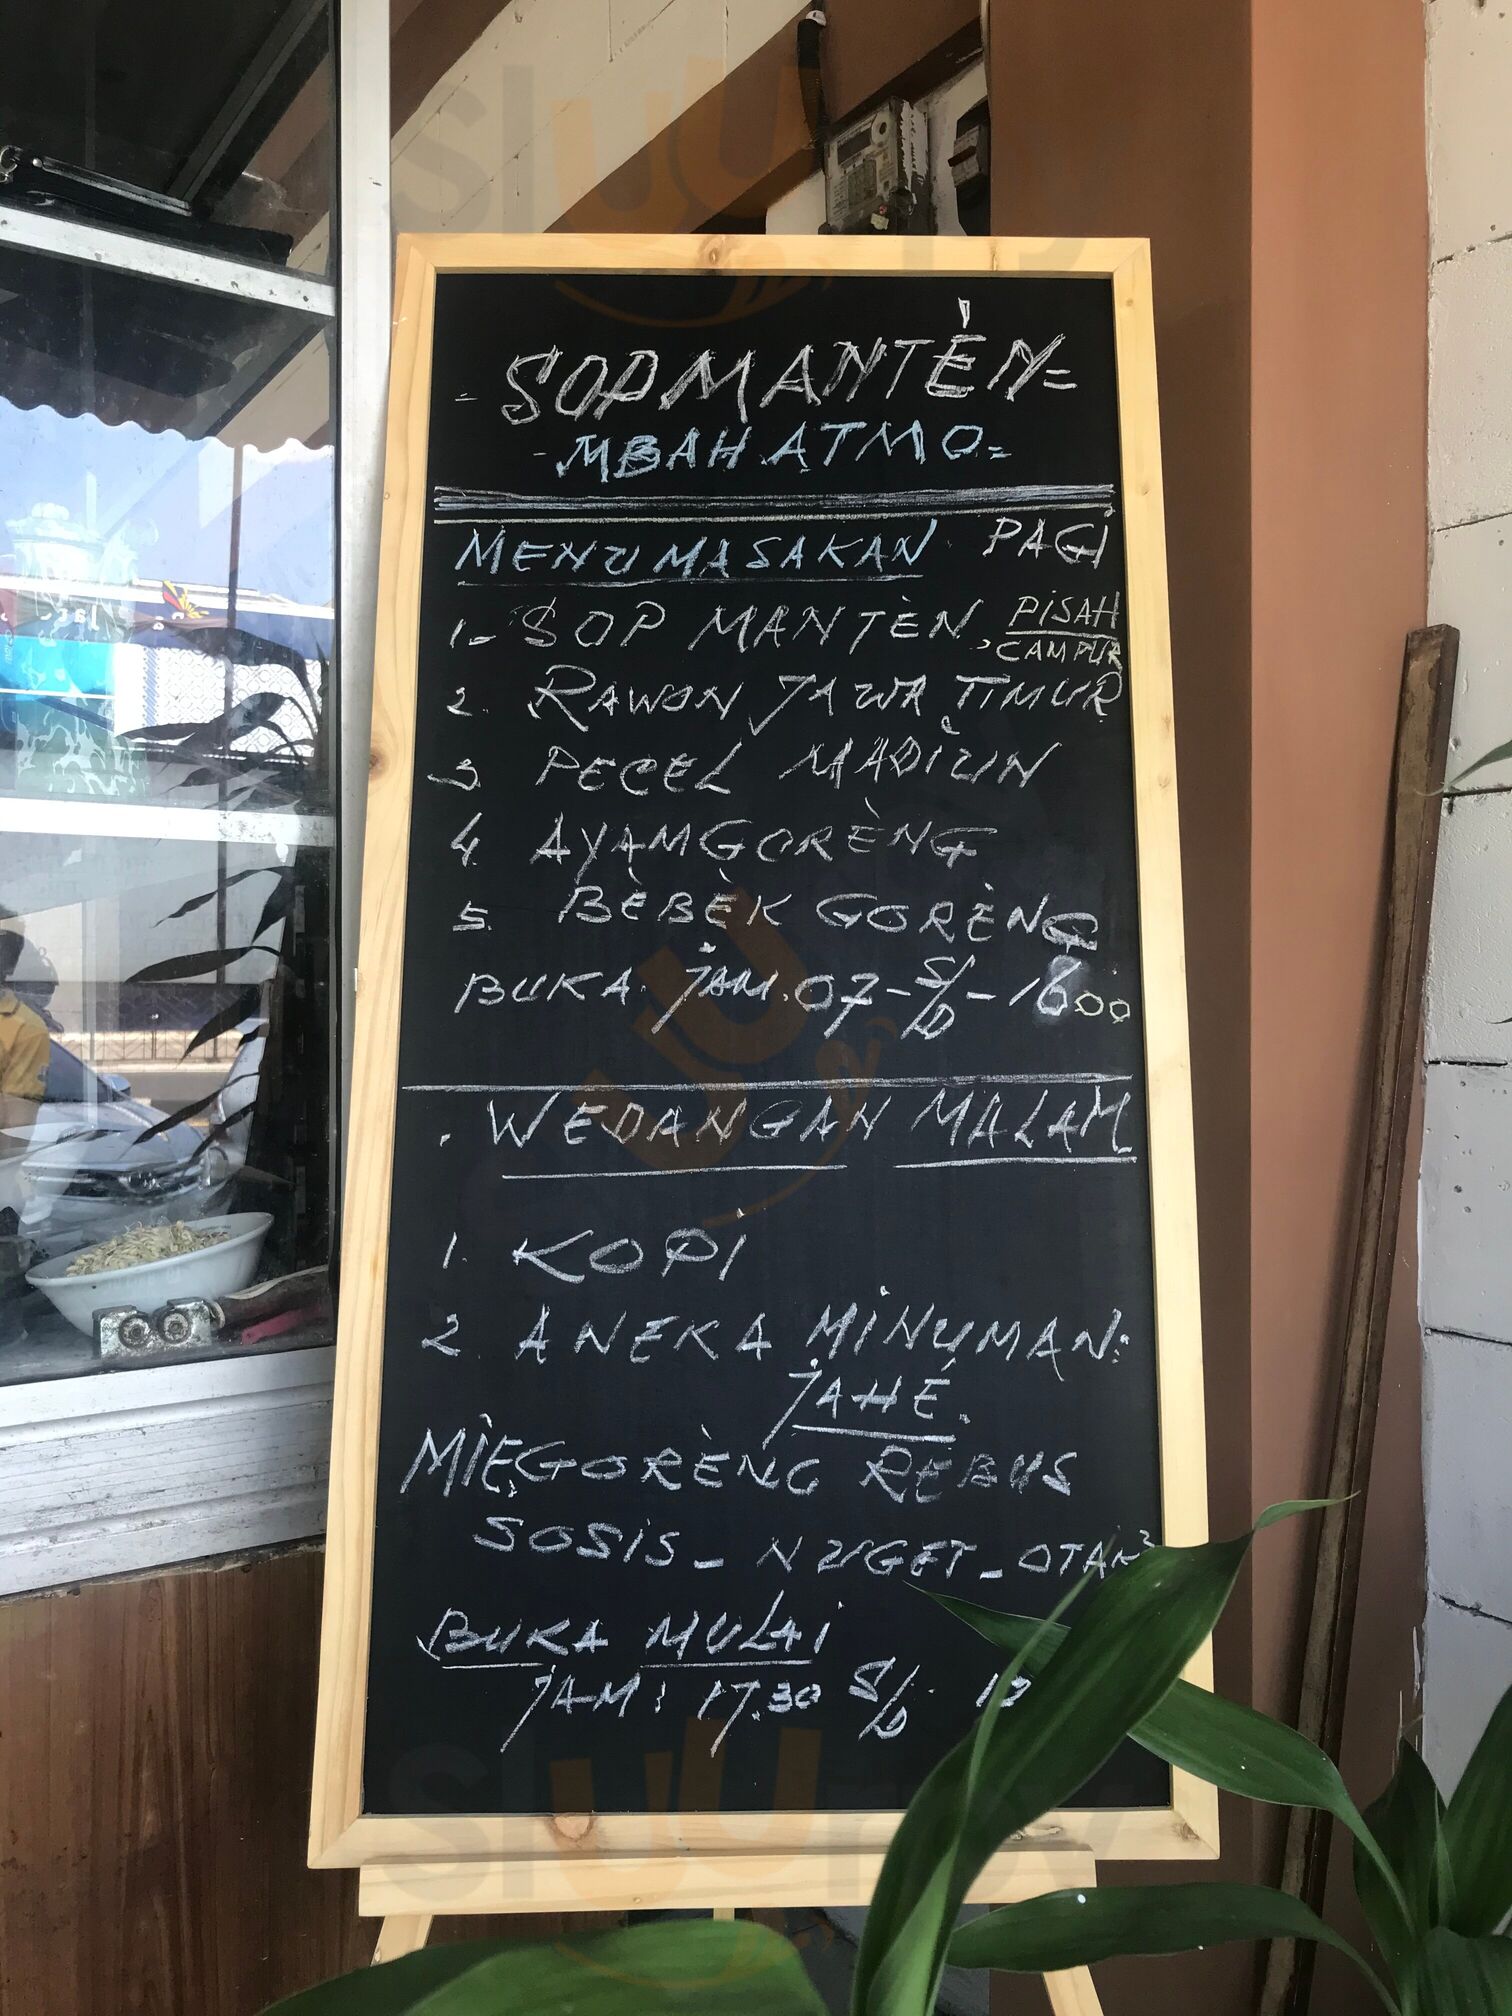 = SOP MANTÈN =
- MBAH ATMO =
MENU MASAKAN PAGI
1- SOP MANTÈN, PISAH
CAMPUR
2. RAWON JAWA TIMUR
3. PECEL MADIUN
4. AYAM GORÈNG
5. BÈBÈK GORÈNG
BUKA. JAM. 07 - S/D - 1600
. WEDANGAN MALAM
1. KOPI
2. ANEKA MINUMAN:
JAHÉ.
MIE GORÈNG REBUS
SOSIS - NUGET - OTAK2
BUKA MULAI
JAM: 17.30 S/D.